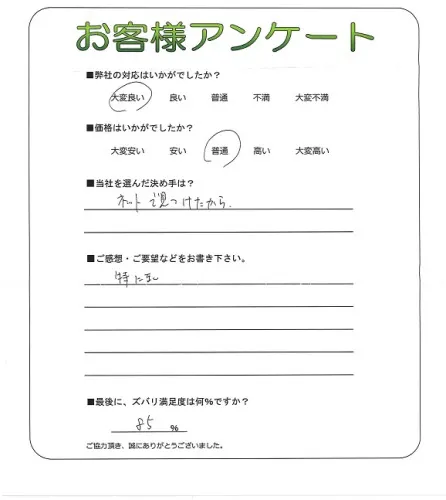 お客様アンケート
■弊社の対応はいかがでしたか？
大変良い 良い 普通 不満 大変不満
■価格はいかがですか？
大変安い 安い 普通 高い 大変高い
■当社を選んだ決め手は？
ネットで見つけたから。
■ご感想・ご要望などをお書き下さい。
特にまし
■最後に、ズバリ満足度は何%ですか？
85 %
ご協力頂き、誠にありがとうございました。